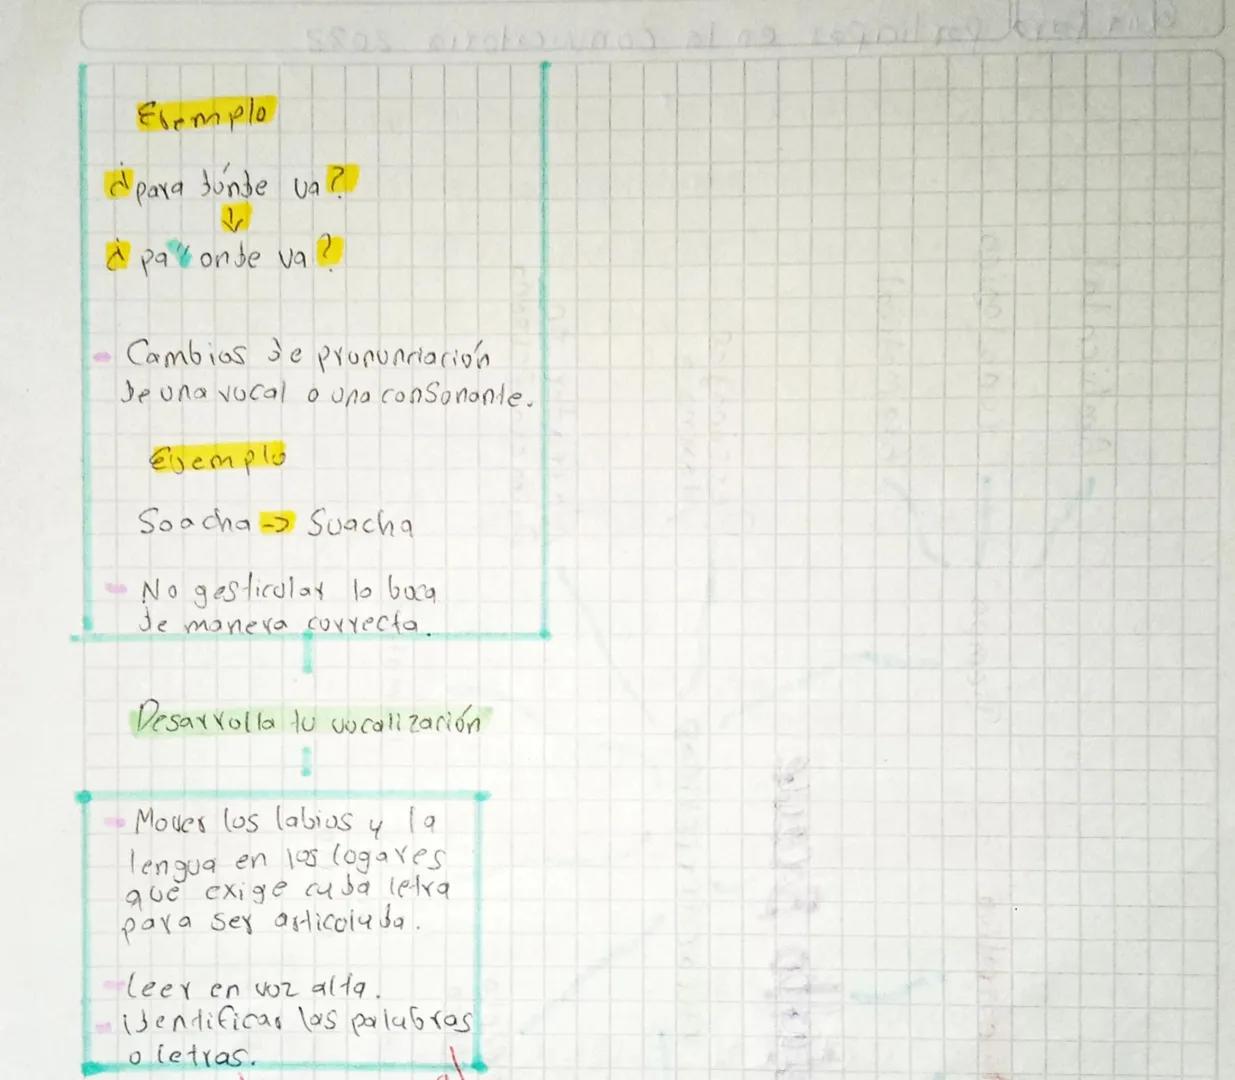 Ejemplo
¿para dónde va?
↓
¿pa' onde va?
- Cambios de pronunciación
de una vocal o una consonante.
Ejemplo
Soacha -> Suacha
- No gesticular la boca
de manera correcta.
Desarrolla tu vocalización
- Mover los labios y la
lengua en los logares
que exige cada letra
para ser articolada.
- leer en voz alta.
- identificar las palabras
o letras.